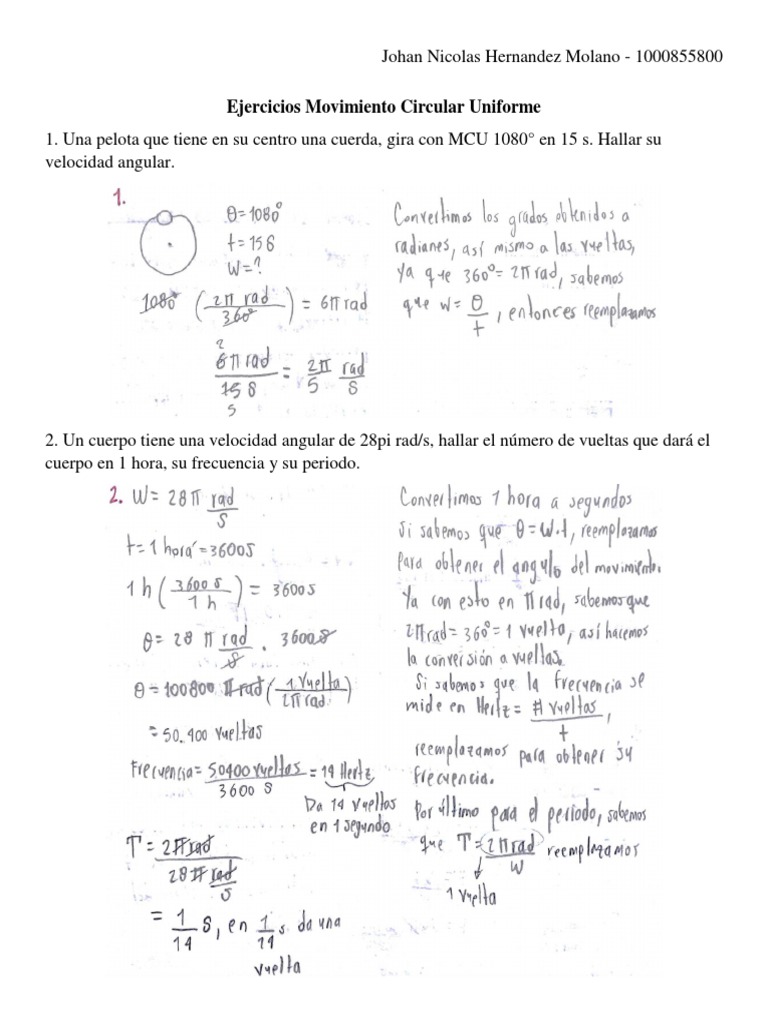 Johan Nicolas Hernandez Molano - 1000855800
Ejercicios Movimiento Circular Uniforme
1. Una pelota que tiene en su centro una cuerda, gira con MCU 1080° en 15 s. Hallar su
velocidad angular.
1.
θ=1080°
t=15s
W=?
1080° (2π rad / 360°) = 6π rad
2
6π rad / 15 s = 2π/5 rad/s
5
Convertimos los grados obtenidos a
radianes, así mismo a las vueltas,
Ya que 360°=2π rad, sabemos
que w= θ/t, entonces reemplazamos
2. Un cuerpo tiene una velocidad angular de 28pi rad/s, hallar el número de vueltas que dará el
cuerpo en 1 hora, su frecuencia y su periodo.
2. W= 28π rad/s
t=1 hora=3600s
1h (3600 s / 1 h) = 3600s
θ= 28 π rad/s . 3600s
θ=100800 π rad (1 Vuelta / 2π rad)
=50.400 vueltas
Frecuencia= 50400 vueltas / 3600 s = 14 Hertz
Da 14 vueltas
en 1 segundo
T= 2π rad / 28π rad/s
= 1/14 s, en 1/14 s da una
vuelta
Convertimos 1 hora a segundos
Si sabemos que θ=W.t, reemplazamos
Para obtener el angulo del movimiento.
Ya con esto en π rad, sabemos que
2π rad= 360°= 1 vuelta, así hacemos
la conversión a vueltas.
Si sabemos que la frecuencia se
mide en Hertz= # vueltas / t,
reemplazamos para obtener su
frecuencia.
Por último para el periodo, sabemos
que T= 2π rad / W reemplazamos
1 vuelta